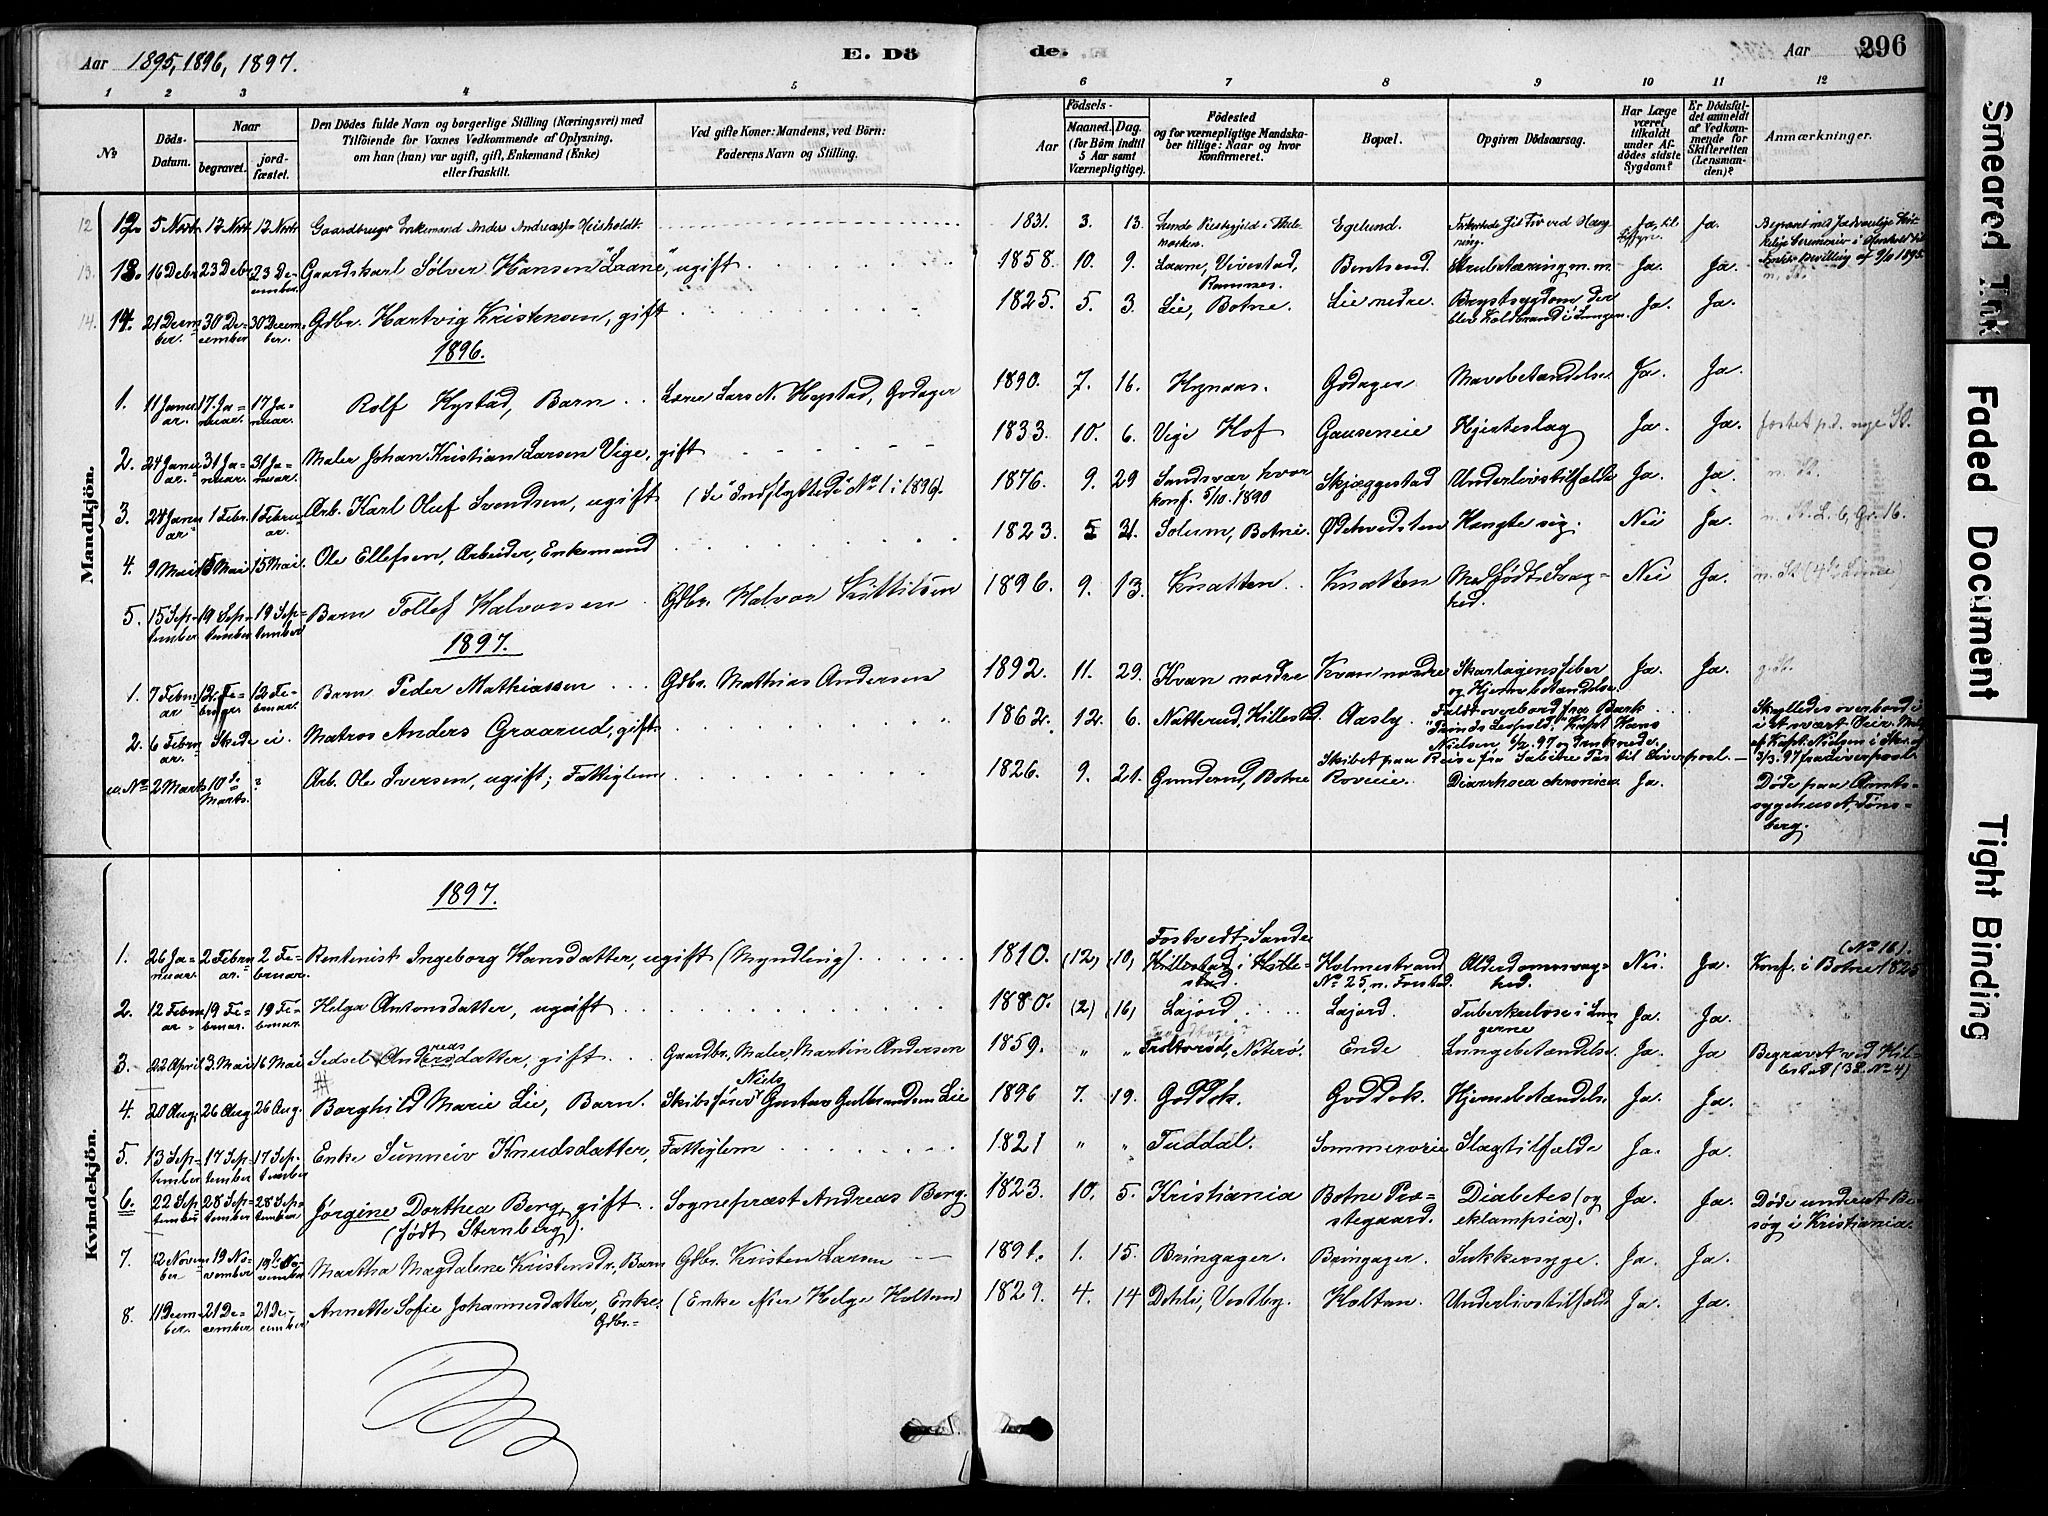 Aar 1895, 1896, 1897.
E. Döde.
Aar 296
1 2 3 4 5 6 7 8 9 10 11 12
No
Döds-Datum.
Naar
begravet.
jordfæstet.
Den Dödes fulde Navn og borgerlige Stilling (Næringsvei) med
Tilföiende for Voxnes Vedkommende af Oplysning.
om han (hun) var ugift, gift, Enkemand (Enke)
eller fraskilt.
Ved gifte Koner: Mandens, ved Börn:
Faderens Navn og Stilling.
Födsels-
Aar
Maaned. Dag.
(for Börn indtil
5 Aar samt
Værnepligtige).
Födested
og for værnepligtige Mandska-
ber tillige: Naar og hvor
konfirmeret.
Bopæl.
Opgiven Dödsaarsag.
Har Læge
været
tilkaldt
under Af-
dödes sidste
Sygdom?
Er Dödsfal-
det anmeldt
af Vedkom-
mende for
Skifteretten
(Lensman-
den)?
Anmærkninger.
Mandkjön.
12. 5 Novbr 12 Novbr 12 Novbr Gaardbruger Enkemand Anders Andreas 1831. 3. 13. Egelund. Ja, Ja.
13. 16 Debr 23 Debr 23 December. Gaardskarl Sølver Hansen "Laane", ugift 1858. 10. 9. Laane, Vivestad, Ramnes. Bentsrud. Strubetæring m. m. Ja. Ja.
14. 21 December. 30 December 30 December. Gdbr. Hartvig Kristensen, gift 1825. 5. 3. Lie, Botne. Lie nedre. Brystsygdom der blev Koldbrand i Lungen. Ja. Ja.
1896.
1. 11 Januar. 17 Januar. 17 Januar. Rolf Hystad, Barn Lærer Lars N. Hystad, Godager 1890. 7. 16. Godager Mavebetændelse Ja. Ja.
2. 24 Januar. 31 Januar. 31 Januar. Maler Johan Kristian Larsen Vige, gift 1833. 10. 6. Vige Hof Gauseneie Hjerteslag Ja. Ja.
3. 28 Januar 1 Febr. 1 Februar. Arb. Karl Oluf Svendsen, ugift (Se "Indflyttede" No 1 i 1896). 1876. 9. 29 Sandsvær, hvor konf. 5/10. 1890 Skjæggestad Underlivstilfælde Ja. Ja.
4. 9 Mai 15 Mai 15 Mai. Ole Ellefsen, Arbeider, Enkemand 1823. 5 31. Solum, Botne. Ødehvedsten Hængte sig. Nei Ja. L. 6, Gr. 16.
5. 15 September 19 September 19 September Barn Tollef Halvorsen Gdbr. Halvor Kittilsen 1896. 9. 13. Knatten. Knatten Medfødt Svaghed. Nei Ja.
1897.
1. 7 Februar 12 Februar 12 Februar. Barn Peder Mathiassen Gdbr. Mathias Andersen 1892. 11. 29. Kvan nordre Kvan nordre Skarlagensfeber og Hjernebetændelse. Ja. Ja.
2. 6 Februar. Skede ei. Matros Anders Graarud, gift 1862. 12. 6. Natterud, Hillestad Aasby. Faldt overbord fra Bark "Prinds Leopold", Kapt. Hans Nielsen 6/2. 97 og druknede. Skibet paa Reise fra Sabine Pas til Liverpool. Skylledes overbord i et svært Veir. 3/3. 97 fra Liverpool.
u. No 2 Marts 10de Marts. ? Arb. Ole Iversen, ugift; Fattiglem 1826. 9. 21. Gunderud, Botne Roveie. Diarrhoea chronica. Ja. Døde paa Amtssygehuset, Tønsberg.
Kvindekjön.
1897.
1. 26 Januar. 2 Februar. 2 Februar. Rentenist Ingeborg Hansdatter, ugift (Myndling). 1810. (12) (10) Fostvedt, Sande Hillestad i Hillestad. Holmestrand No 25, n. Forstad. Alderdomssvaghed. Nei. Ja. (No 16). Konf. i Botne 1825
2. 12 Februar 19 Februar. 19 Februar. Helga Antonsdatter, ugift 1880. (2) 16, Lajord Lajord. Tuberkulose i Lungerne Ja. Ja.
3. 22 April 3. Mai 6 Mai Sedsel Andersdatter, gift. Gaardbr. Maler, Martin Andersen 1859. " " Nøterø. Ende Lungebetændelse Ja. Ja Begravet ved Hillestad (3 L. No 4)
4. 20 Aug. 26 Aug 26 Aug. Borghild Marie Lie, Barn. Skibsfører Niels Gustav Gulbrandsen Lie 1896 7. 19. Goddok. Goddok. Hjernebetændelse Ja. Ja.
5. 13 September 17 September 17 September Enke Sunneiv Knudsdatter, Fattiglem 1821 " " Tuddal. Sommeroeie Slagtilfælde Ja. Ja.
6. 22 September 28 September 28 September Jørgine Dorthea Berg, gift (født Sternberg). Sognepræst Andreas Berg. 1823. 10. 5. Kristiania Botne Præstegaard. Diabetes (og eklampsia). Ja. Ja. Døde under et Besøg i Kristiania.
7. 12 November 19 November 19de November Martha Magdalene Kristensdr., Barn Gdbr. Kristen Larsen 1891. 1. 15. Bringager. Bringager. Sukkersyge. Ja. Ja.
8. 11 December. 21 December 21 December Annette Sofie Johannesdatter, Gdbr.-Enke. (Enke efter Helge Holtan) 1829. 4. 14 Dehli, Vestby. Holtan. Underlivstilfælde Ja. Ja.
Smeared Ink
Faded Document
Tight Binding